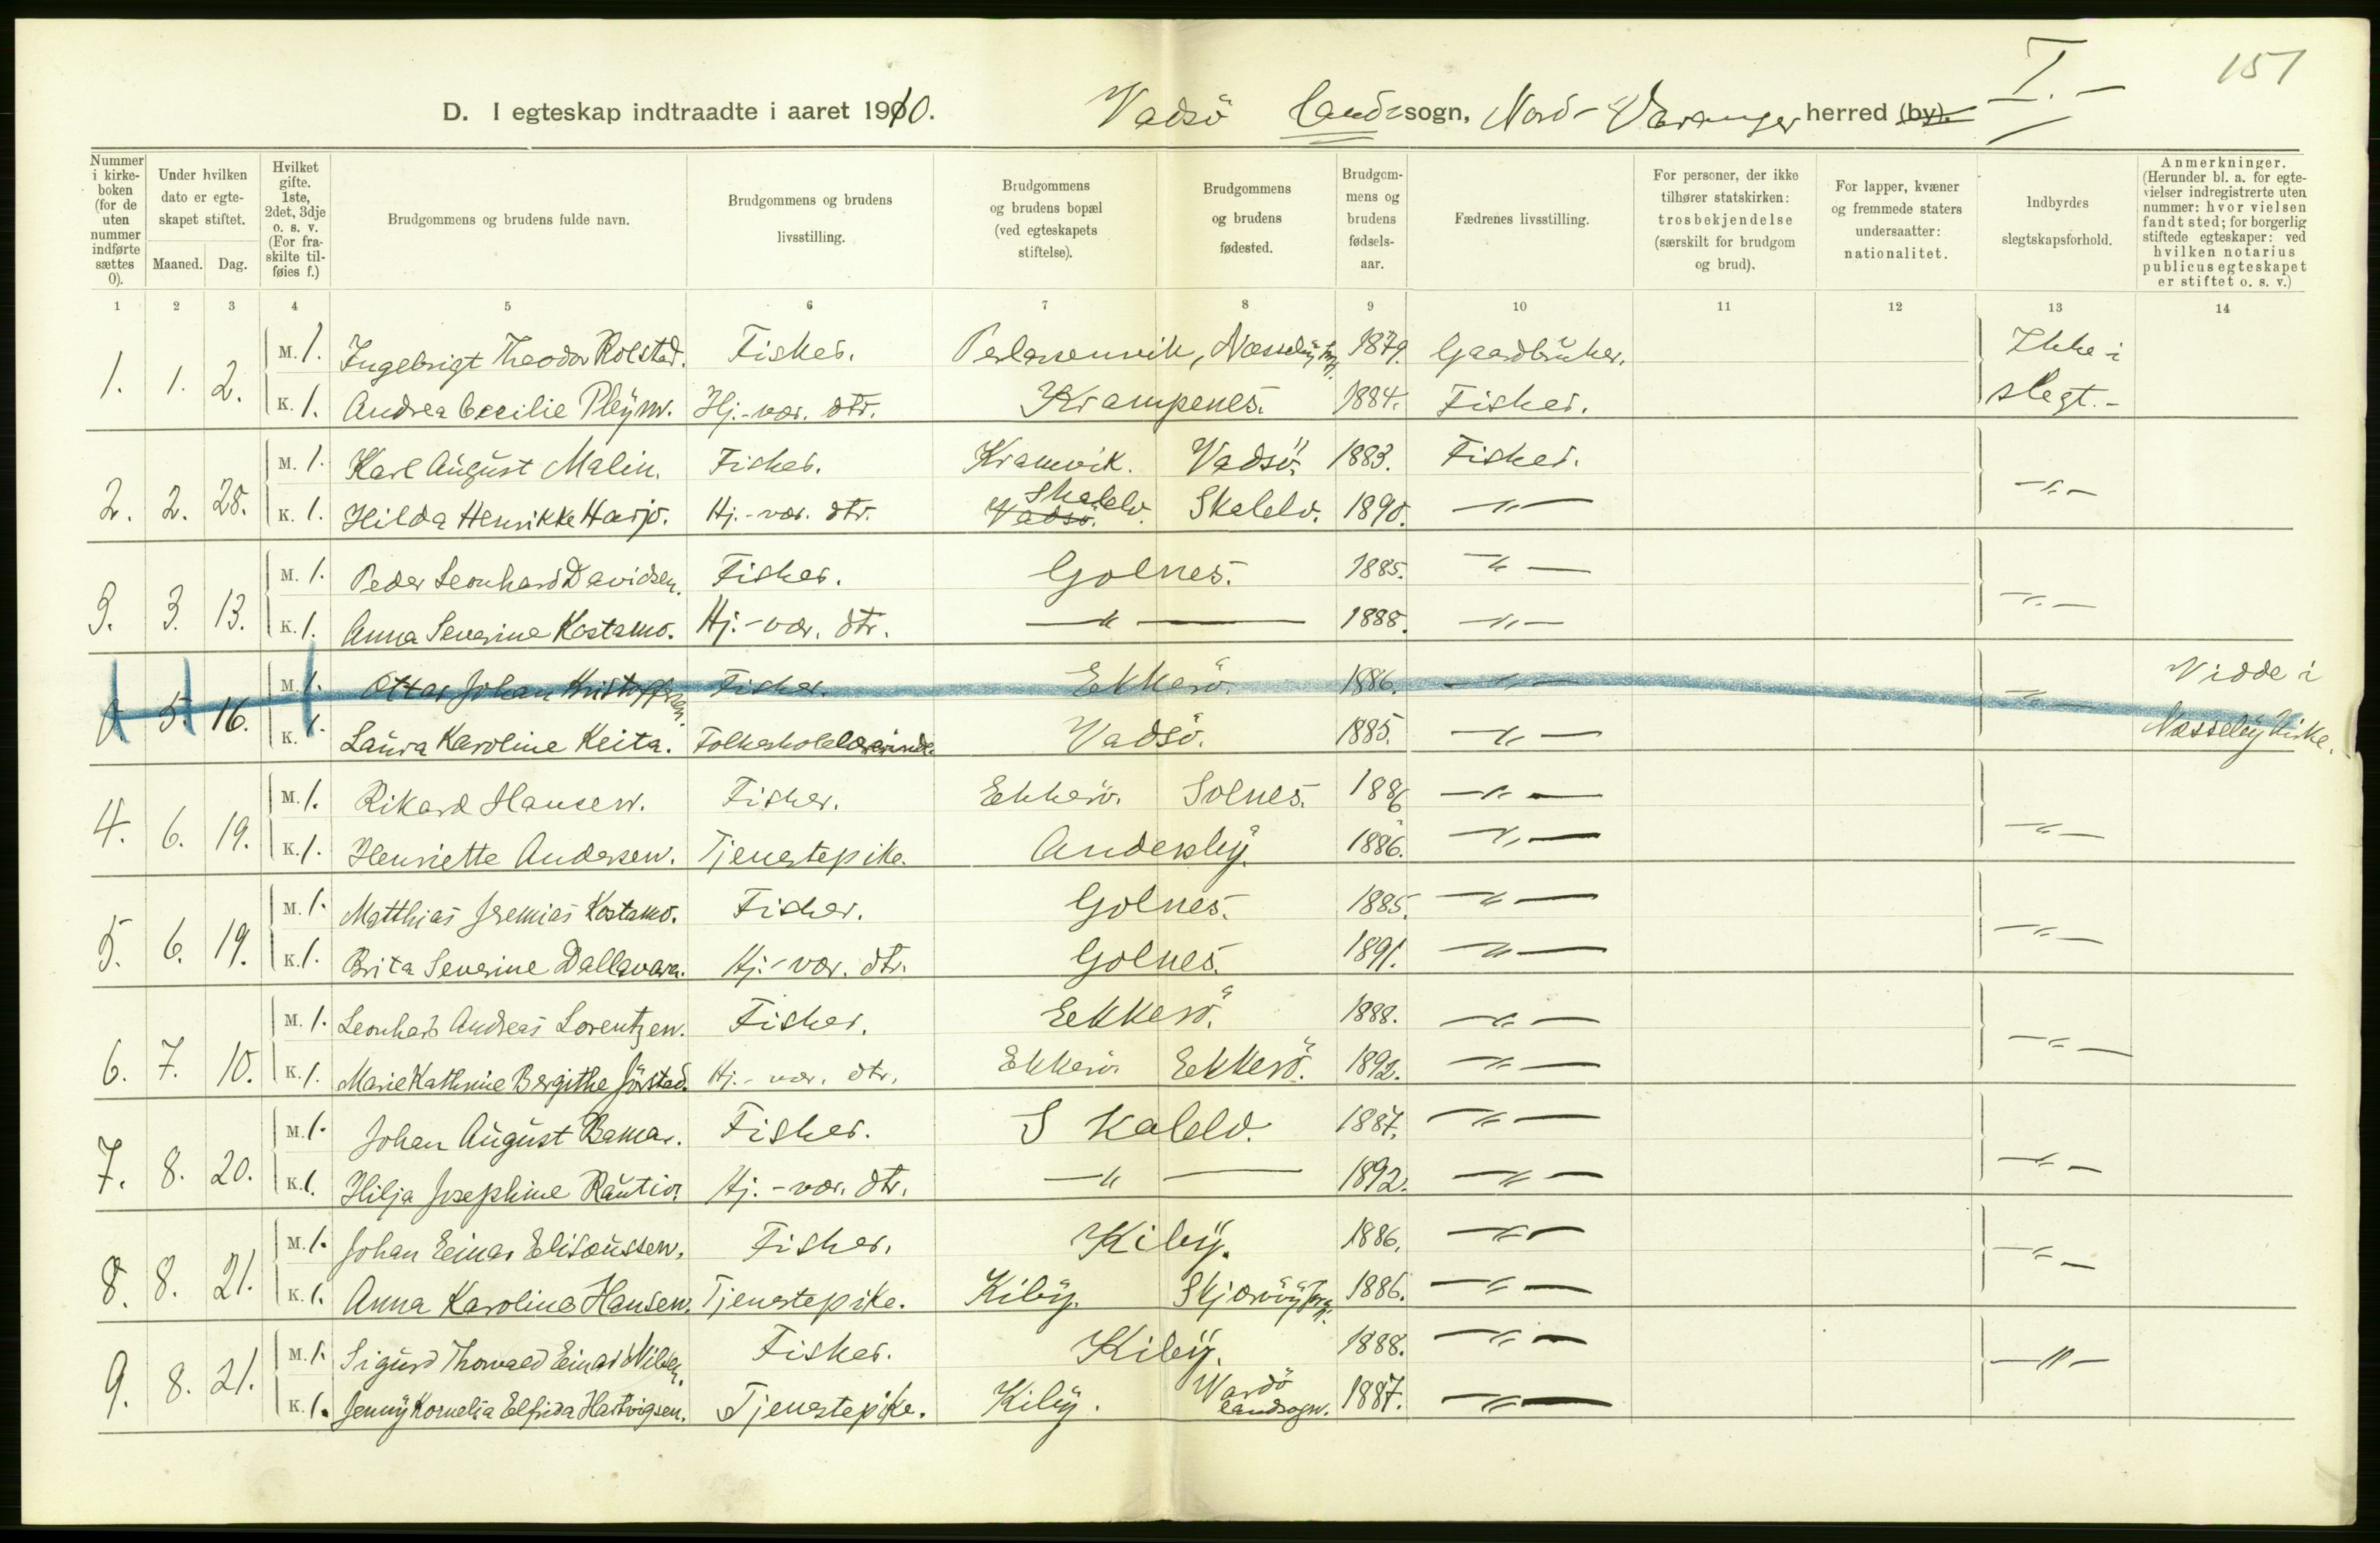 151
I. -
D. I egteskap indtraadte i aaret 1910. Vadsö Landssogn, Nord-Varanger herred (by).
Nummer i kirkeboken (for de uten nummer indførte sættes 0).
Under hvilken dato er egteskapet stiftet.
Maaned. Dag.
Hvilket gifte. 1ste, 2det, 3dje o. s. v. (For fraskilte tilføies f.)
Brudgommens og brudens fulde navn.
Brudgommens og brudens livsstilling.
Brudgommens og brudens bopæl (ved egteskapets stiftelse).
Brudgommens og brudens fødested.
Brudgommens og brudens fødselsaar.
Fædrenes livsstilling.
For personer, der ikke tilhører statskirken: trosbekjendelse (særskilt for brudgom og brud).
For lapper, kvæner og fremmede staters undersaatter: nationalitet.
Indbyrdes slegtskapsforhold.
Anmerkninger. (Herunder bl. a. for egtevielser indregistrerte uten nummer: hvor vielsen fandt sted; for borgerlig stiftede egteskaper: ved hvilken notarius publicus egteskapet er stiftet o. s. v.)
1 2 3 4 5 6 7 8 9 10 11 12 13 14
1. 1. 2. M. 1. Ingebrigt Theodor Rolstad. Fisker. Nesseby 1879. Gaardbruker. Ikke i
K. 1. Andrea Cecilie Pleym. Hj.-vær. dtr. Krampenes. 1884. Fisker. slegt.-
2. 2. 28. M. 1. Karl August Malin. Fisker. Kramvik. Vadsö. 1883. Fisker. -"-
K. 1. Hilda Henrikke Harjo. Hj.-vær. dtr. Vadsö. Skalelv. Skalelv. 1890. -"-
3. 3. 13. M. 1. Peder Leonhard Davidsen. Fisker. Golnes. 1885. -"- -"-
K. 1. Anna Severine Kostamo. Hj.-vær. dtr. -"- 1888. -"-
0. 5. 16. M. 1. Ottar Johan Kristoffersen. Fisker. Ekkerö. 1886. -"- -"- Viede i
K. 1. Laura Karoline Keita. Folkeskolelærerinde. Vadsö. 1885. -"- Næsseby Kirke.
4. 6. 19. M. 1. Rikard Hansen. Fisker. Ekkerö. Golnes. 1886 -"- -"-
K. 1. Henriette Andersen. Tjenestepike. Andersby. 1886. -"-
5. 6. 19. M. 1. Matthias Jeremias Kostamo. Fisker. Golnes. 1885. -"- -"-
K. 1. Brita Severine Dallavara. Hj.-vær. dtr. Golnes. 1891. -"-
6. 7. 10. M. 1. Leonhard Andreas Lorentzen. Fisker. Ekkerö. 1888. -"- -"-
K. 1. Marie Kathrine Bergithe Jörstad. Hj.-vær. dtr. Ekkerö. Ekkerö. 1892. -"-
7. 8. 20. M. 1. Johan August Bamar. Fisker. Skalelv. 1887. -"- -"-
K. 1. Hilja Josephine Rautio. Hj.-vær. dtr. -"- 1892. -"-
8. 8. 21. M. 1. Johan Einar Elisæussen. Fisker. Kiby. 1886. -"- -"-
K. 1. Anna Karolina Hansen. Tjenestepike. Kiby. Skjærvöy prg. 1886. -"-
9. 8. 21. M. 1. Sigurd Thorvald Einar Nilsen. Fisker. Kiby. 1888. -"- -"-
K. 1. Jenny Kornelia Elfrida Hartvigsen. Tjenestepike. Kiby. Vardö landsogn. 1887. -"-